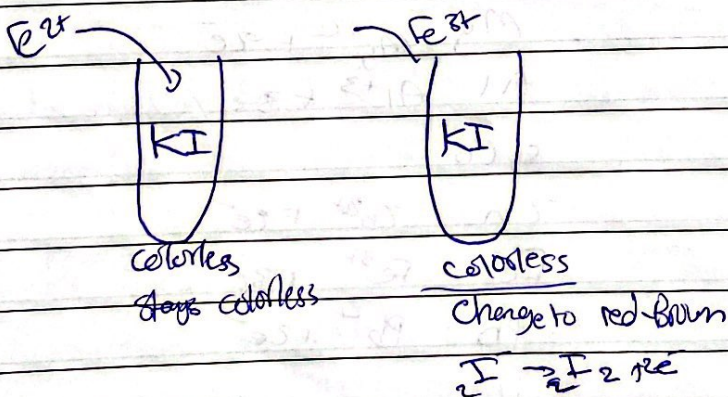 Fe²⁺
Fe³⁺
KI
KI
colorless
stays colorless
colorless
change to red-Brown
₂I⁻ → ₂I ₂ +2e⁻